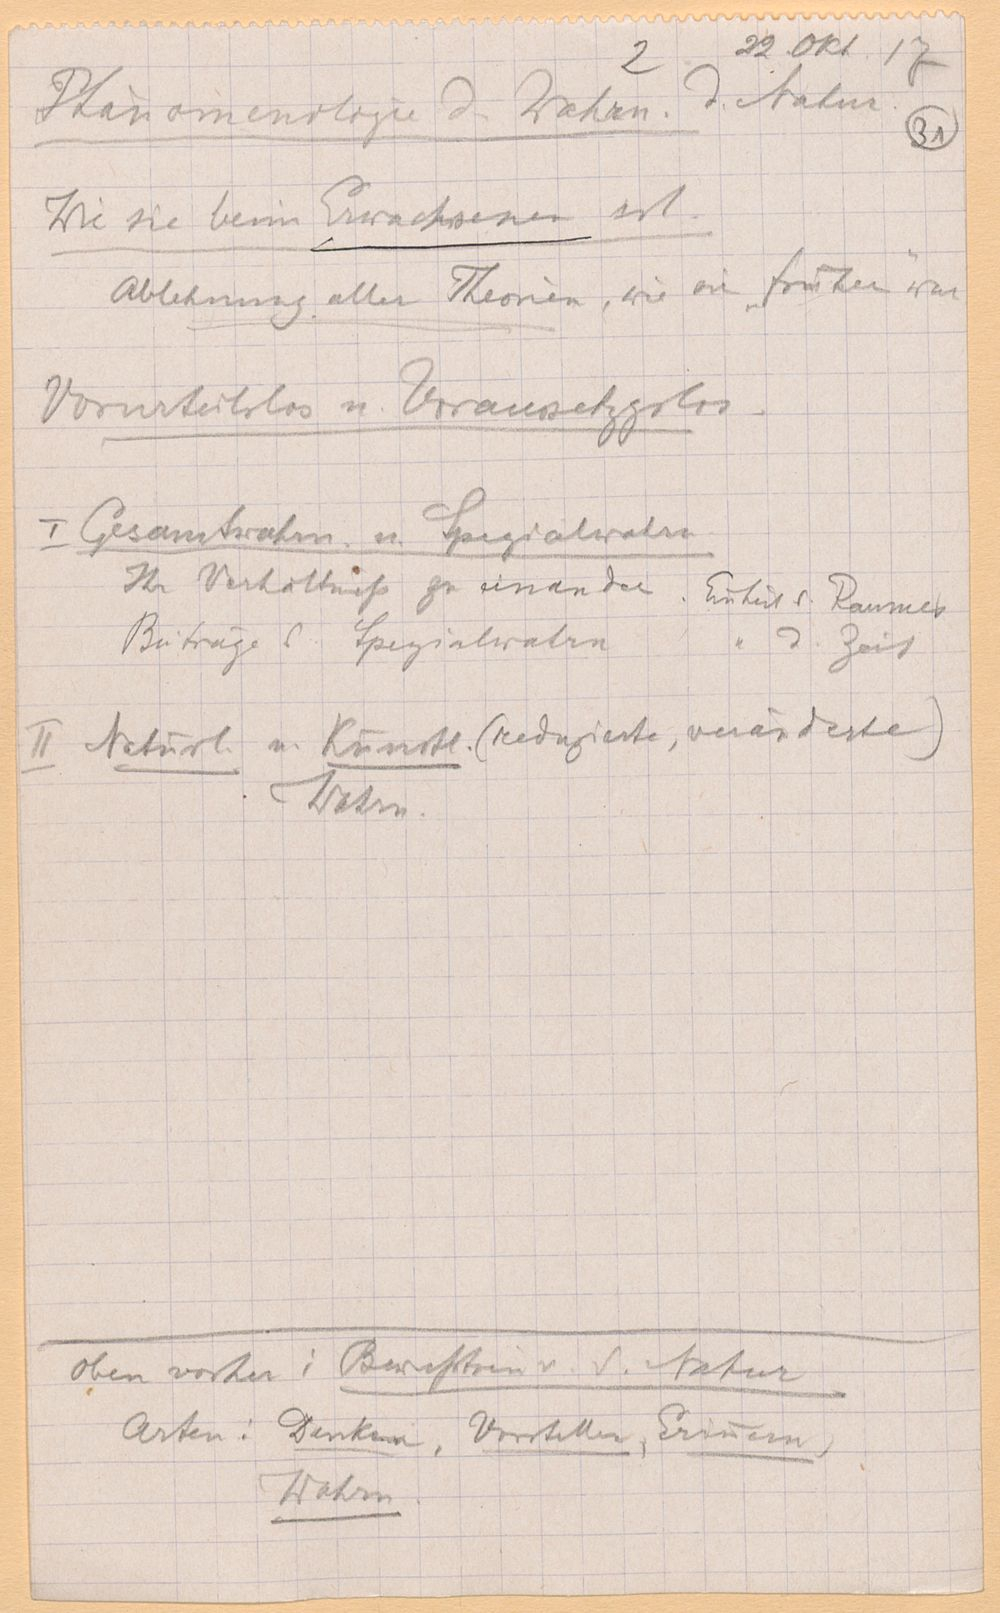 2 22 Okt. 17
Phänomenologie d. Wahrn. d. Natur.
31
Wie sie beim Erwachsenen ist.
Ablehnung aller Theorien, wie sie „früher" war
Vorurteilslos u. Voraussetzgslos.
I Gesamtwahrn. u. Spezialwahrn
Ihr Verhältniß zu einander. Einheit d. Raumes
Beiträge d. Spezialwahrn " d. Zeit
II Natürl. u. Künstl. (reduzierte, veränderte)
Wahrn.
oben vorher: Bewußtsein v. d. Natur
Arten: Denken, Vorstellen, Erinnern,
Wahrn.